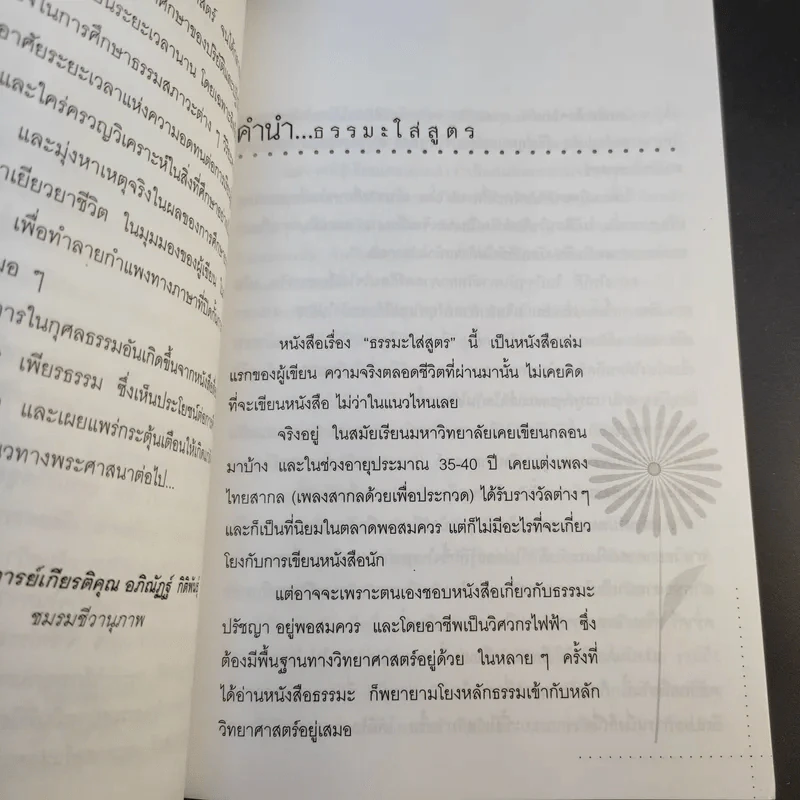 สตร์ จนได้
นระยะเวลานาน
ในการศึกษาธรรมสภาวะต่าง ๆ
อาศัยระยะเวลาแห่งความอดทนต่อการ
และใคร่ครวญวิเคราะห์ในสิ่งที่ศึกษา
และมุ่งหาเหตุจริงในผลของการศึกษา
าเยียวยาชีวิต ในมุมมองของผู้เขียน
เพื่อทำลายกำแพงทางภาษาที่ปิดกั้น
มอ ๆ
ารในกุศลธรรมอันเกิดขึ้นจากหนังสือ
เพียรธรรม ซึ่งเห็นประโยชน์ต่อการ
และเผยแพร่กระตุ้นเตือนให้เกิด
วทางพระศาสนาต่อไป...
ารย์เกียรติคุณ อภิณัฏฐ์ กิติพันธุ์
ชมรมชีวานุภาพ
คำนำ...ธรรมะใส่สูตร
หนังสือเรื่อง “ธรรมะใส่สูตร” นี้ เป็นหนังสือเล่ม
แรกของผู้เขียน ความจริงตลอดชีวิตที่ผ่านมานั้น ไม่เคยคิด
ที่จะเขียนหนังสือ ไม่ว่าในแนวไหนเลย
จริงอยู่ ในสมัยเรียนมหาวิทยาลัยเคยเขียนกลอน
มาบ้าง และในช่วงอายุประมาณ 35-40 ปี เคยแต่งเพลง
ไทยสากล (เพลงสากลด้วยเพื่อประกวด) ได้รับรางวัลต่างๆ
และก็เป็นที่นิยมในตลาดพอสมควร แต่ก็ไม่มีอะไรที่จะเกี่ยว
โยงกับการเขียนหนังสือนัก
แต่อาจจะเพราะตนเองชอบหนังสือเกี่ยวกับธรรมะ
ปรัชญา อยู่พอสมควร และโดยอาชีพเป็นวิศวกรไฟฟ้า ซึ่ง
ต้องมีพื้นฐานทางวิทยาศาสตร์อยู่ด้วย ในหลายๆ ครั้งที่
ได้อ่านหนังสือธรรมะ ก็พยายามโยงหลักธรรมเข้ากับหลัก
วิทยาศาสตร์อยู่เสมอ